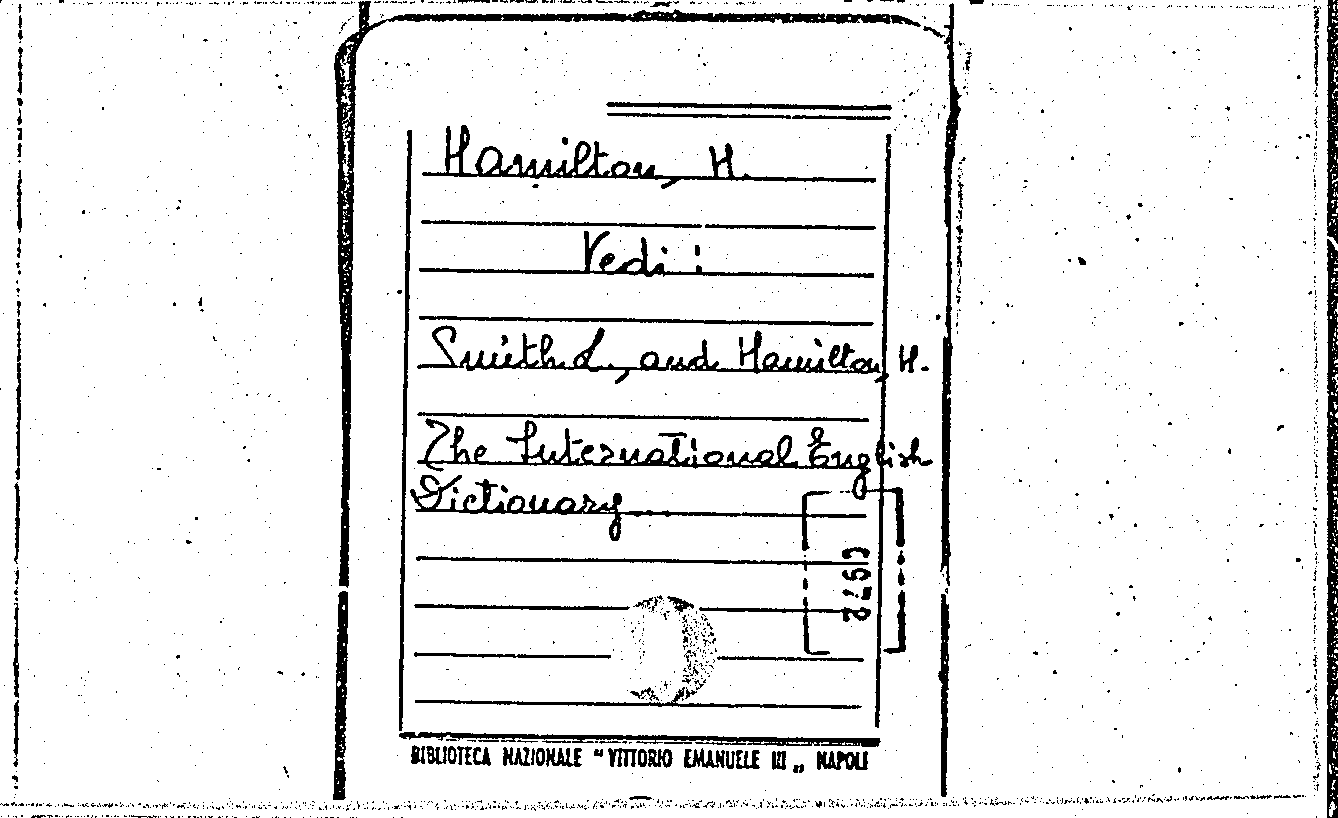 Hamilton, H.
Vedi :
Smith L., and Hamilton, H.
The International English
Dictionary...
1972
BIBLIOTECA NAZIONALE "VITTORIO EMANUELE III„ NAPOLI